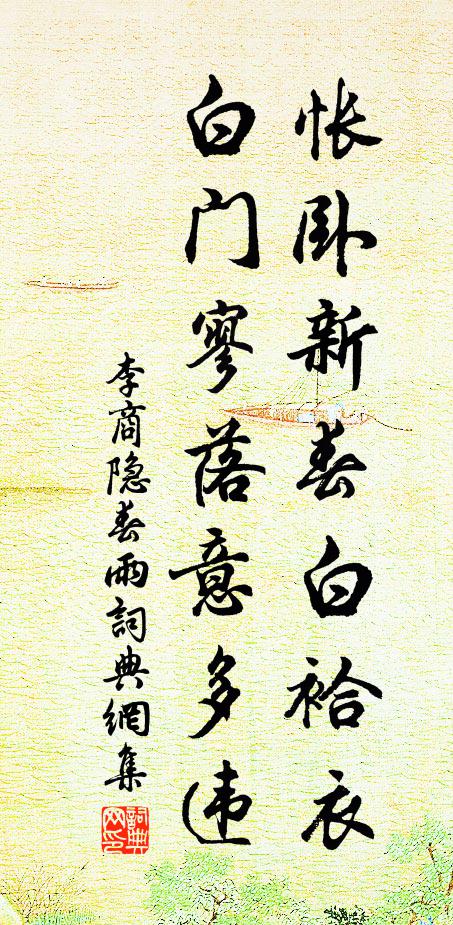 怅卧新春白袷衣
白门寥落意多违
李商隐春雨詞典網集
詞典网印